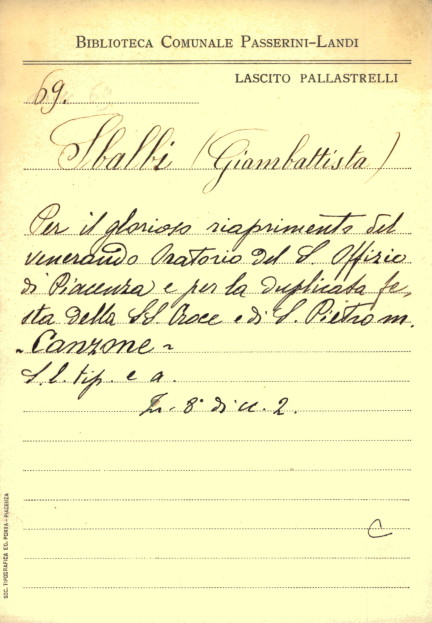 BIBLIOTECA COMUNALE PASSERINI-LANDI
LASCITO PALLASTRELLI
69.
Sbalbi (Giambattista)
Per il glorioso riaprimento del
venerando Oratorio del S. Offizio
di Piacenza e per la duplicata fe,
sta della SS. Croce e di S. Pietro m.
- Canzone -
S. l. tip. e a.
In - 8° di cc. 2.
C
SOC. TIPOGRAFICA ED. PORTA - PIACENZA